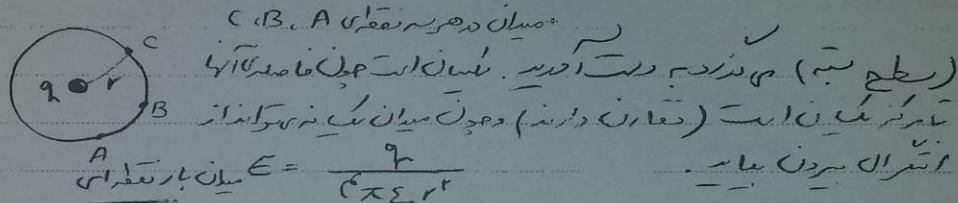 میدان در هر سه نقطه‌ی C ، B ، A
(سطح بسته) می‌گذرد به دست آورید. یکسان است چون فاصله‌ی آنها
تا مرکز یکسان است (تقارن دارند) و چون میدان یکسانه می‌تواند از
انتگرال بیرون بیاید.
C
q r
B
A
میدان بار نقطه‌ای E = q / ۴πε r²